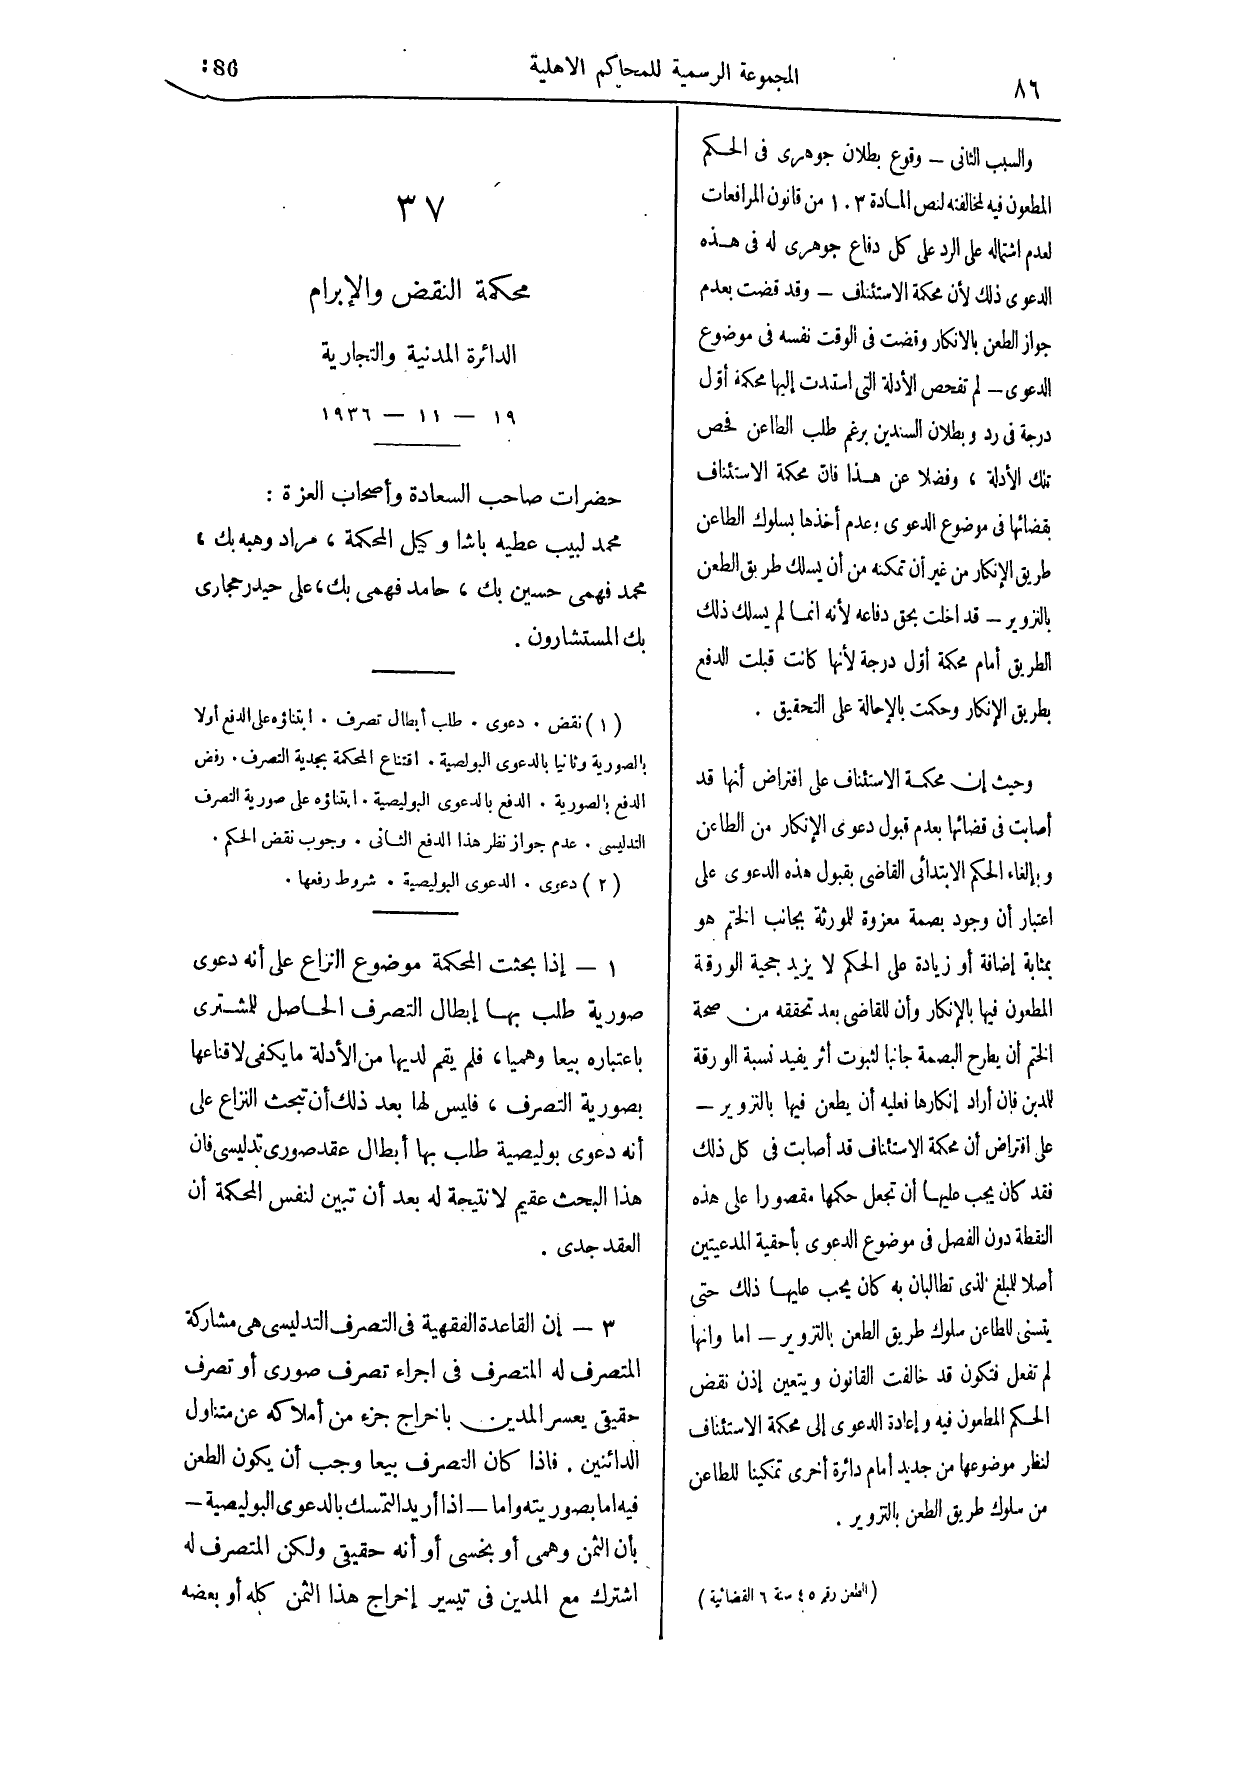 ٨٦
المجموعة الرسمية للمحاكم الاهلية
86:
والسبب الثانى – وقوع بطلان جوهرى فى الحكم
المطعون فيه لمخالفته لنص المادة ١٠٣ من قانون المرافعات
لعدم اشتماله على الرد على كل دفاع جوهرى له فى هذه
الدعوى ذلك لأن محكمة الاستئناف – وقد قضت بعدم
جواز الطعن بالانكار وقضت فى الوقت نفسه فى موضوع
الدعوى – لم تفحص الأدلة التى استندت إليها محكمة أوّل
درجة فى رد وبطلان السندين برغم طلب الطاعن فحص
تلك الأدلة ، وفضلا عن هذا فانّ محكمة الاستئناف
بقضائها فى موضوع الدعوى بعدم أخذها بسلوك الطاعن
طريق الإنكار من غير أن تمكنه من أن يسلك طريق الطعن
بالتزوير – قد اخلت بحق دفاعه لأنه انما لم يسلك ذلك
الطريق أمام محكمة أوّل درجة لأنها كانت قبلت الدفع
بطريق الإنكار وحكمت بالإحالة على التحقيق .
وحيث إن محكمة الاستئناف على افتراض أنها قد
أصابت فى قضائها بعدم قبول دعوى الإنكار من الطاعن
وبإلغاء الحكم الابتدائى القاضى بقبول هذه الدعوى على
اعتبار أن وجود بصمة معزوة للمورثة بجانب الختم هو
بمثابة إضافة أو زيادة على الحكم لا يزيد حجية الورقة
المطعون فيها بالإنكار وأن للقاضى بعد تحققه من صحة
الختم أن يطرح البصمة جانبا لثبوت أثر يفيد نسبة الورقة
للدين فإن أراد إنكارها فعليه أن يطعن فيها بالتزوير –
على افتراض أن محكمة الاستئناف قد أصابت فى كل ذلك
فقد كان يجب عليها أن تجعل حكمها مقصورا على هذه
النقطة دون الفصل فى موضوع الدعوى بأحقية المدعيتين
أصلا للمبلغ الذى تطالبان به كان يجب عليها ذلك حتى
يتسنى للطاعن سلوك طريق الطعن بالتزوير – اما وانها
لم تفعل فتكون قد خالفت القانون ويتعين إذن نقض
الحكم المطعون فيه وإعادة الدعوى إلى محكمة الاستئناف
لنظر موضوعها من جديد أمام دائرة أخرى تمكينا للطاعن
من سلوك طريق الطعن بالتزوير .
(الطعن رقم ٤٥ سنة ٦ القضائية)
٣٧
محكمة النقض والإبرام
الدائرة المدنية والتجارية
١٩ – ١١ – ١٩٣٦
حضرات صاحب السعادة وأصحاب العزة :
محمد لبيب عطيه باشا وكيل المحكمة ، مراد وهبه بك ،
محمد فهمى حسين بك ، حامد فهمى بك ، على حيدر حجازى
بك المستشارون .
(١) نقض . دعوى . طلب أبطال تصرف . ابتناؤه على الدفع أولا
بالصورية وثانيا بالدعوى البولصية . اقتناع المحكمة بجدية التصرف . رفض
الدفع بالصورية . الدفع بالدعوى البوليصية . ابتناؤه على صورية التصرف
التدليسى . عدم جواز نظر هذا الدفع الثانى . وجوب نقض الحكم .
(٢) دعوى . الدعوى البوليصية . شروط رفعها .
١ – إذا بحثت المحكمة موضوع النزاع على أنه دعوى
صورية طلب بها إبطال التصرف الحاصل للمشترى
باعتباره بيعا وهميا ، فلم يقم لديها من الأدلة ما يكفى لاقناعها
بصورية التصرف ، فليس لها بعد ذلك أن تبحث النزاع على
أنه دعوى بوليصية طلب بها أبطال عقد صورى تدليسى فان
هذا البحث عقيم لا نتيجة له بعد أن تبين لنفس المحكمة أن
العقد جدى .
٣ – إن القاعدة الفقهية فى التصرف التدليسى هى مشاركة
المتصرف له المتصرف فى اجراء تصرف صورى أو تصرف
حقيقى يعسر المدين باخراج جزء من أملاكه عن متناول
الدائنين . فاذا كان التصرف بيعا وجب أن يكون الطعن
فيه اما بصوريته واما – اذا أريد التمسك بالدعوى البوليصية –
بأن الثمن وهمى أو بخسى أو أنه حقيقى ولكن المتصرف له
اشترك مع المدين فى تيسير إخراج هذا الثمن كله أو بعضه